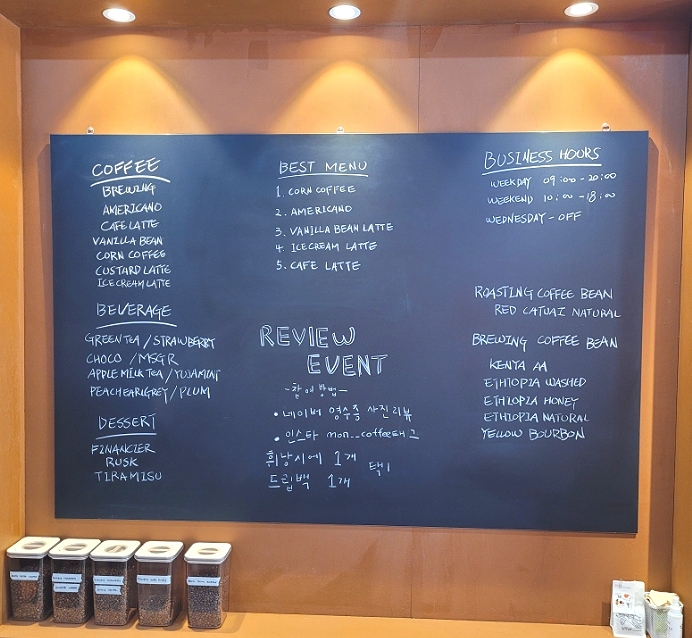 COFFEE
BREWING
AMERICANO
CAFE LATTE
VANILLA BEAN
CORN COFFEE
CUSTARD LATTE
ICE CREAM LATTE
BEVERAGE
GREEN TEA / STRAWBERRY
CHOCO / MSGR
APPLE MILK TEA / YUJAMINT
PEACH EARLGREY / PLUM
DESSERT
FINANCIER
RUSK
TIRAMISU
BEST MENU
1. CORN COFFEE
2. AMERICANO
3. VANILLA BEAN LATTE
4. ICE CREAM LATTE
5. CAFE LATTE
REVIEW
EVENT
-참여방법-
• 네이버 영수증 사진리뷰
• 인스타 mon_coffee태그
휘낭시에 1개
드립백 1개
택1
BUSINESS HOURS
WEEKDAY 09:00-20:00
WEEKEND 10:00-18:00
WEDNESDAY - OFF
ROASTING COFFEE BEAN
RED CATUAI NATURAL
BREWING COFFEE BEAN
KENYA AA
ETHIOPIA WASHED
ETHIOPIA HONEY
ETHIOPIA NATURAL
YELLOW BOURBON